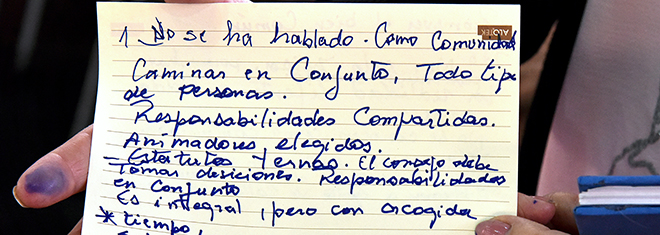 ALOTEK
1. No se ha hablado. Como Comunidad
Caminar en Conjunto, Todo tipo
de personas.
Responsabilidades Compartidas.
Animadores, elegidos.
Estatutos. El consejo debe
Tomar desiciones. Responsabilidades
en conjunto
Es integral, pero con acogida
* tiempo,